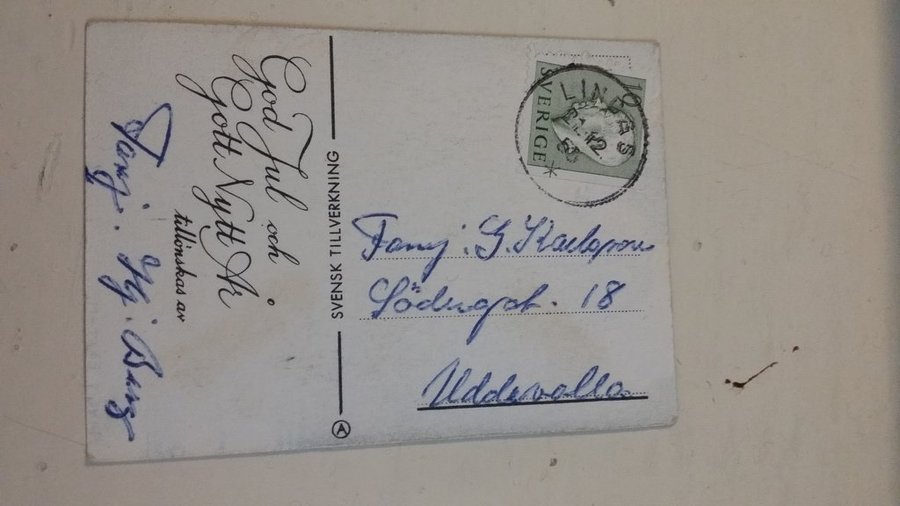 God Jul och
Gott Nytt År
tillönskas av
Famj. Hj. Berg
SVENSK TILLVERKNING
A
10
SVERIGE
LINFÄS
21 12
Famj. G. Karlsson
Södergat. 18
Uddevalla